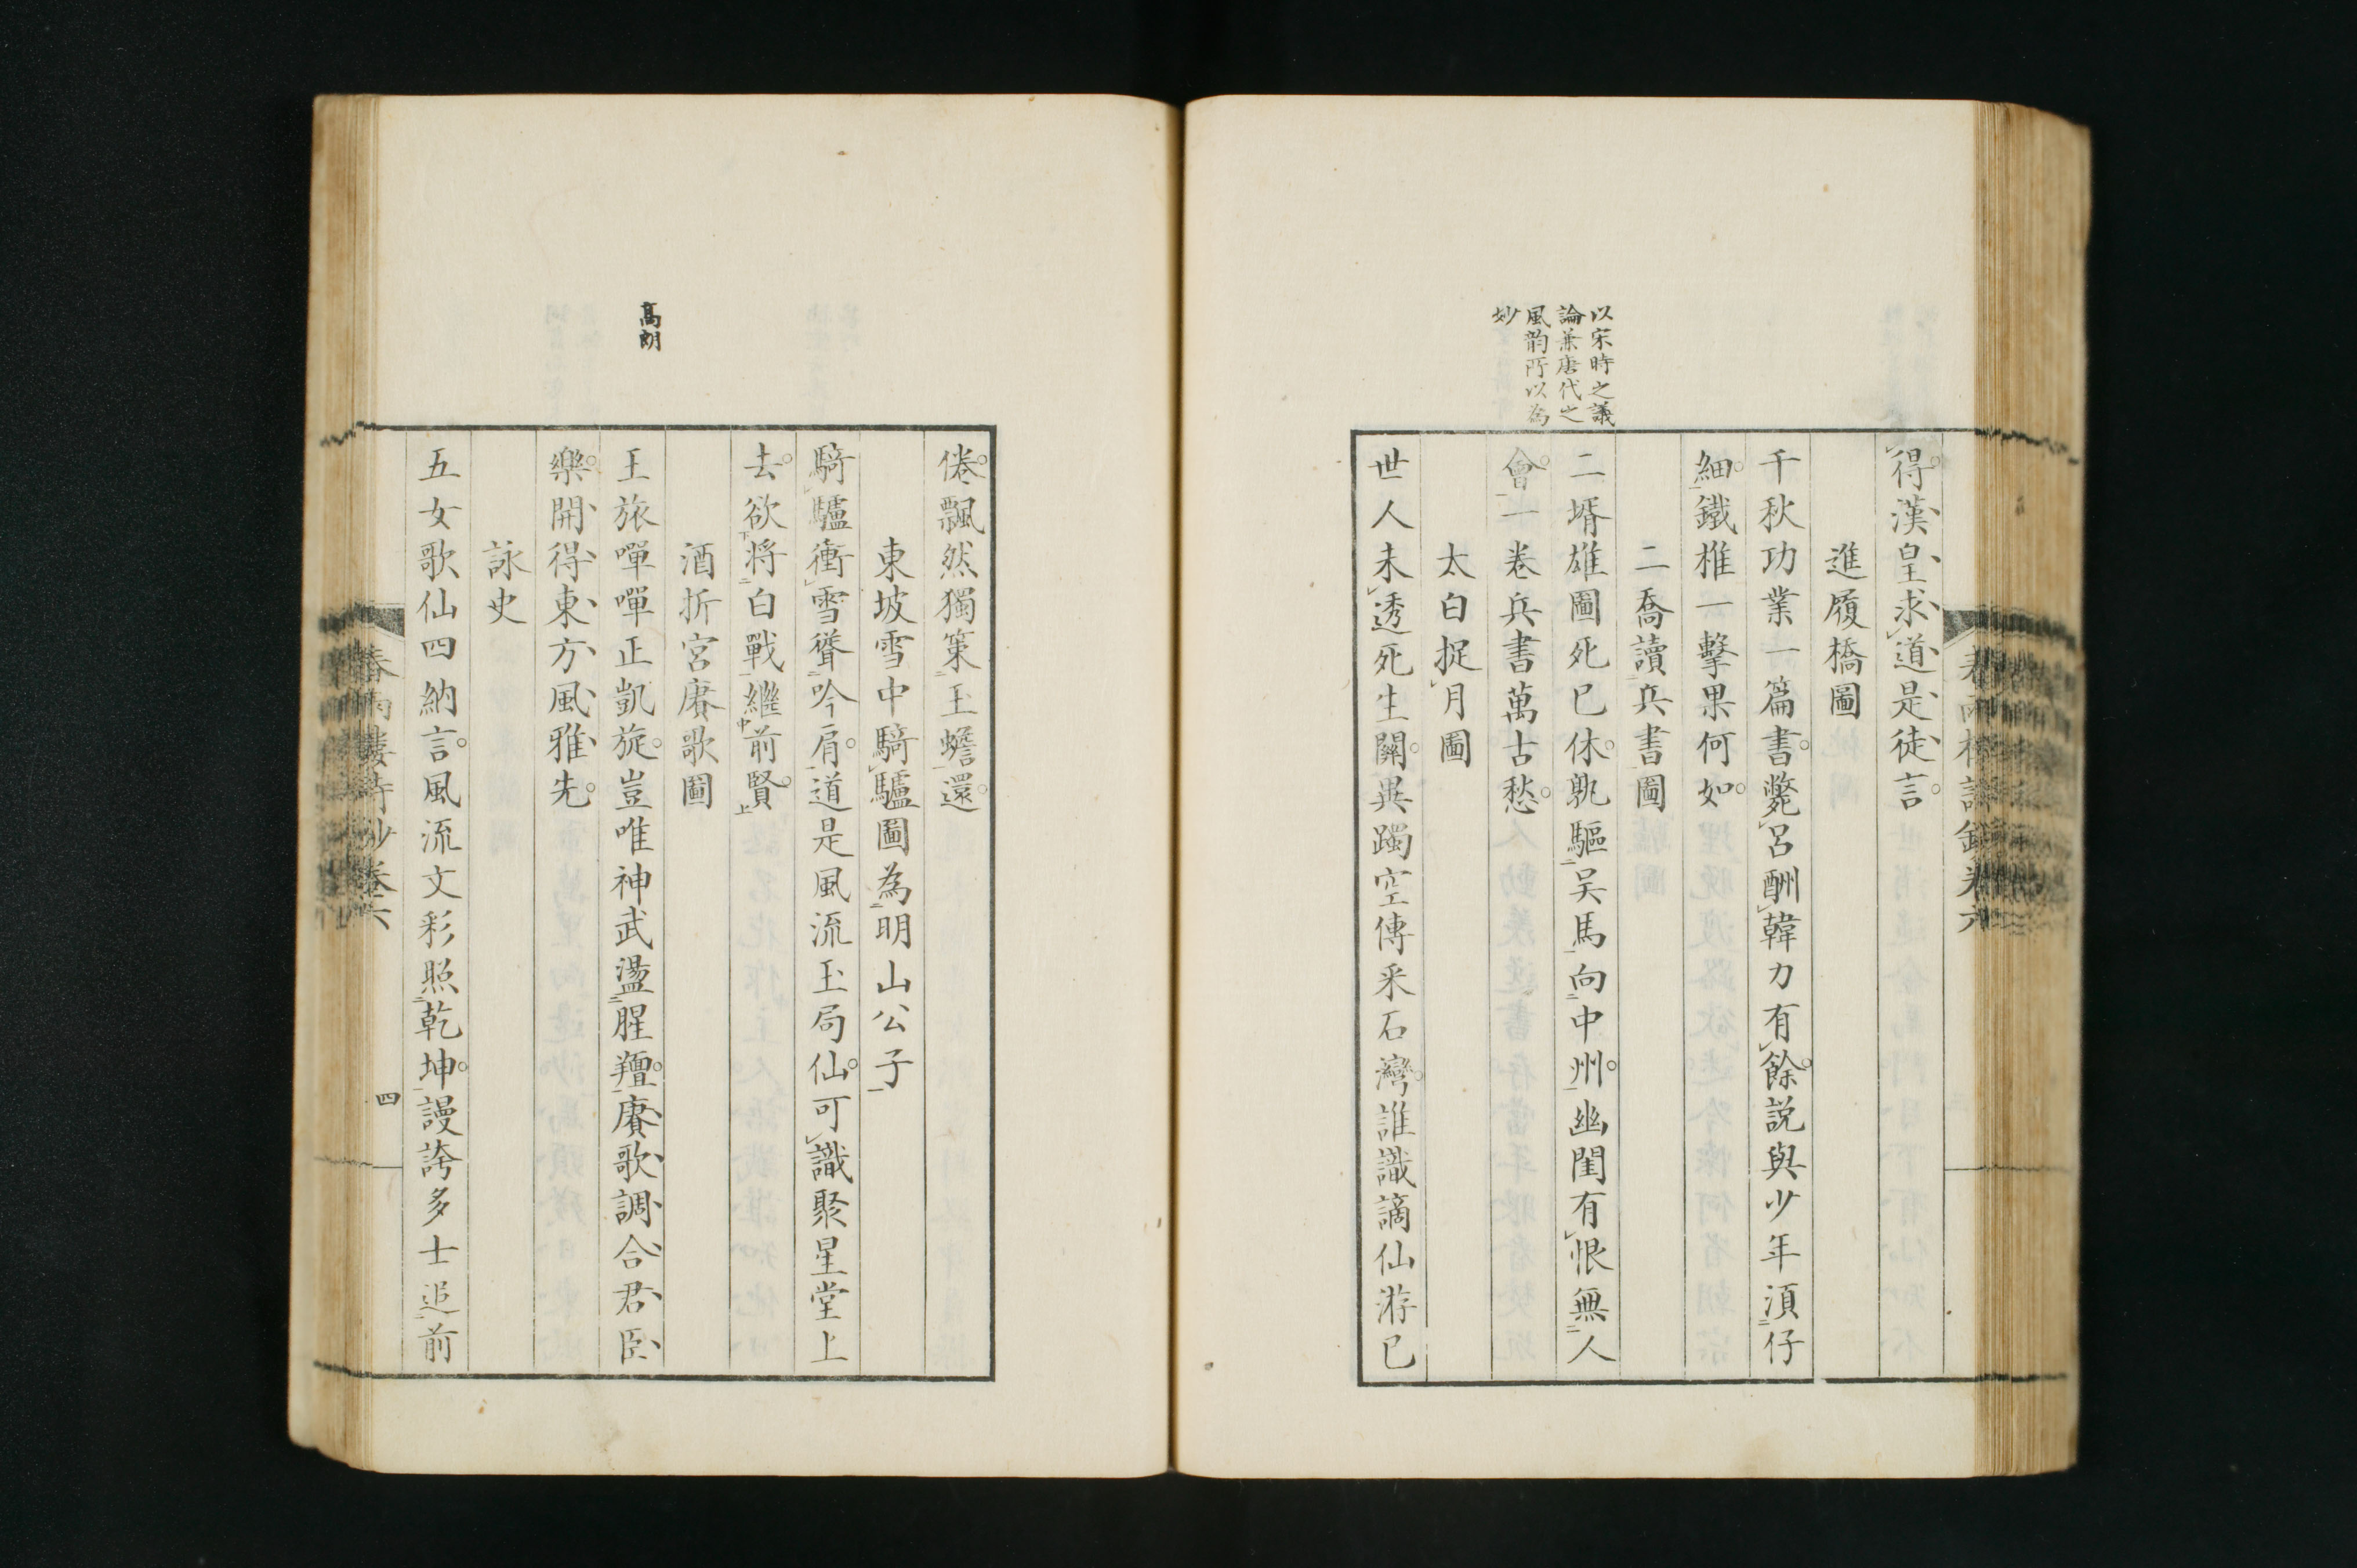 得漢皇求道是徒言
進履橋圖
千秋功業一篇書斃呂酬韓力有餘説與少年湏仔
細鐵椎一擊果何如
二喬讀兵書圖
二壻雄圖死已休孰驅吴馬向中州幽閨有恨無人
會一卷兵書萬古愁
太白捉月圖
世人未透死生關異躅空傳采石灣誰識謫仙游已
以宋時之議
論兼唐代之
風韵所以為
妙
倦飄然獨策玉蟾還
東坡雪中騎驢圖為明山公子
騎驢衝雪聳吟肩道是風流玉局仙可識聚星堂上
去欲将白戰繼前賢
酒折宮賡歌圖
王旅嘽嘽正凱旋豈唯神武盪腥羶賡歌調合君臣
樂開得東方風雅先
詠史
五女歌仙四納言風流文彩照乾坤謾誇多士追前
高朗
春雨樓詩鈔卷六
四